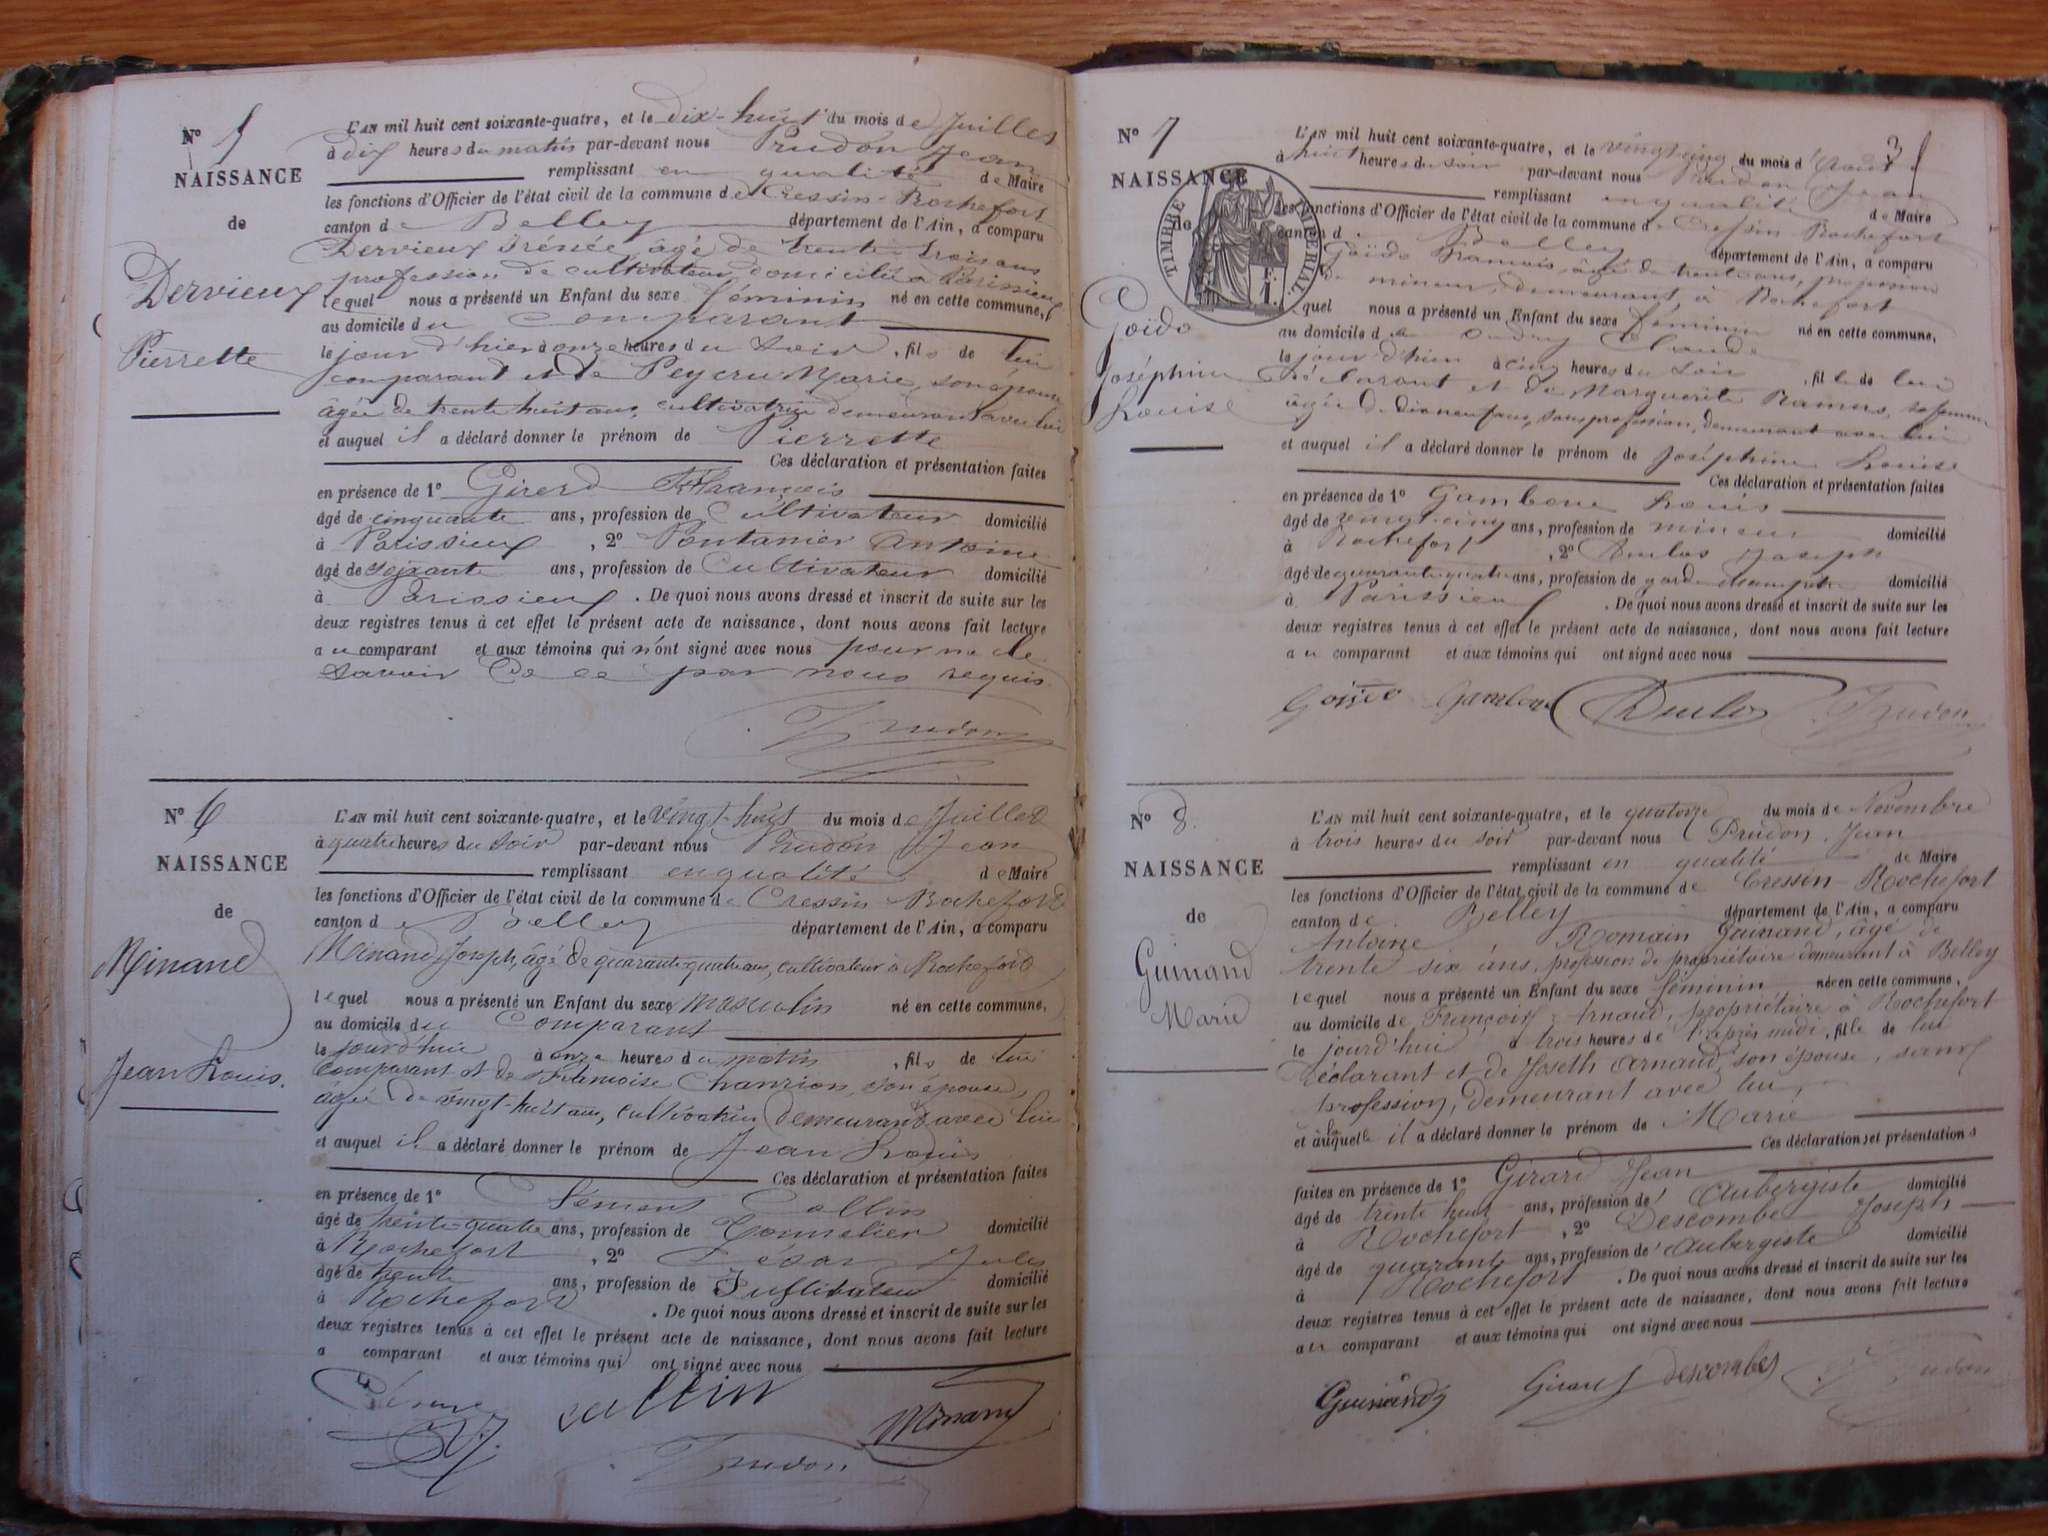 N° 5
NAISSANCE
de
Dervieux
Pierrette
L'AN mil huit cent soixante-quatre, et le dix-huit du mois de Juillet
à dix heures du matin par-devant nous Prudon Jean
remplissant en qualité de Maire
les fonctions d'Officier de l'état civil de la commune de Cressin-Rochefort
canton de Belley département de l'Ain, a comparu
Dervieux Irénée, âgé de trente trois ans
profession de cultivateur domicilié à Parissieux
lequel nous a présenté un Enfant du sexe féminin né en cette commune,
au domicile du comparant
le jour d'hier à onze heures du soir, fils de lui
comparant et de Peycru Marie, son épouse
âgée de trente huit ans, cultivatrice demeurant avec lui
et auquel il a déclaré donner le prénom de Pierrette
Ces déclaration et présentation faites
en présence de 1° Girerd François
âgé de cinquante ans, profession de Cultivateur domicilié
à Parissieux, 2° Pontanier Antoine
âgé de soixante ans, profession de Cultivateur domicilié
à Parissieux. De quoi nous avons dressé et inscrit de suite sur les
deux registres tenus à cet effet le présent acte de naissance, dont nous avons fait lecture
au comparant et aux témoins qui n'ont signé avec nous pour ne le
savoir de ce par nous requis.
Prudon
N° 6
NAISSANCE
de
Minand
Jean Louis.
L'AN mil huit cent soixante-quatre, et le vingt-huit du mois de Juillet
à quatre heures du soir par-devant nous Prudon Jean
remplissant en qualité de Maire
les fonctions d'Officier de l'état civil de la commune de Cressin Rochefort
canton de Belley département de l'Ain, a comparu
Minand Joseph, âgé de quarante-quatre ans, cultivateur à Rochefort
lequel nous a présenté un Enfant du sexe masculin né en cette commune,
au domicile du comparant
le jourd'hui à onze heures du matin, fils de lui
comparant et de Françoise Chanrion, son épouse,
âgée de vingt-huit ans, cultivatrice demeurant avec lui
et auquel il a déclaré donner le prénom de Jean Louis
Ces déclaration et présentation faites
en présence de 1° Collin
âgé de trente-quatre ans, profession de Tonnelier domicilié
à Rochefort, 2° Jules
âgé de trente ans, profession de domicilié
à Rochefort. De quoi nous avons dressé et inscrit de suite sur les
deux registres tenus à cet effet le présent acte de naissance, dont nous avons fait lecture
a comparant et aux témoins qui ont signé avec nous
collin
Minand
Prudon
N° 7
NAISSANCE
de
TIMBRE IMPÉRIAL
Goïdo
Joséphine
Louise
L'AN mil huit cent soixante-quatre, et le vingt cinq du mois d'Août
à huit heures du soir par-devant nous Prudon Jean
remplissant en qualité de Maire
les fonctions d'Officier de l'état civil de la commune de Cressin Rochefort
canton de Belley département de l'Ain, a comparu
Goïdo François, âgé de trente ans, profession
de mineur, demeurant à Rochefort
lequel nous a présenté un Enfant du sexe féminin né en cette commune,
au domicile de Claude
le jour d'hier à cinq heures du soir, fille de lui
déclarant et de Marguerite Ramus, sa femme
âgée de dix neuf ans, sans profession, demeurant avec lui
et auquel il a déclaré donner le prénom de Joséphine Louise
Ces déclaration et présentation faites
en présence de 1° Gambone Louis
âgé de vingt-cinq ans, profession de mineur domicilié
à Rochefort, 2° Joseph
âgé de quarante-quatre ans, profession de garde champêtre domicilié
à Parissieux. De quoi nous avons dressé et inscrit de suite sur les
deux registres tenus à cet effet le présent acte de naissance, dont nous avons fait lecture
au comparant et aux témoins qui ont signé avec nous
Prudon
N° 8.
NAISSANCE
de
Guinand
Marie
L'AN mil huit cent soixante-quatre, et le quatorze du mois de Novembre
à trois heures du soir par-devant nous Prudon Jean
remplissant en qualité de Maire
les fonctions d'Officier de l'état civil de la commune de Cressin-Rochefort
canton de Belley département de l'Ain, a comparu
Antoine Romain Guinand, âgé de
trente six ans, profession de propriétaire demeurant à Belley
lequel nous a présenté un Enfant du sexe féminin née en cette commune,
au domicile de François Arnaud, propriétaire à Rochefort
le jourd'hui à trois heures de l'après midi, fille de lui
déclarant et de Joseth Arnaud, son épouse, sans
profession, demeurant avec lui,
et à laquelle il a déclaré donner le prénom de Marie
Ces déclarations et présentations
faites en présence de 1° Girard Jean
âgé de trente huit ans, profession d'Aubergiste domicilié
à Rochefort, 2° Descombe Joseph
âgé de quarant ans, profession d'Aubergiste domicilié
à Rochefort. De quoi nous avons dressé et inscrit de suite sur les
deux registres tenus à cet effet le présent acte de naissance, dont nous avons fait lecture
au comparant et aux témoins qui ont signé avec nous
Guinand Girard descombes Prudon